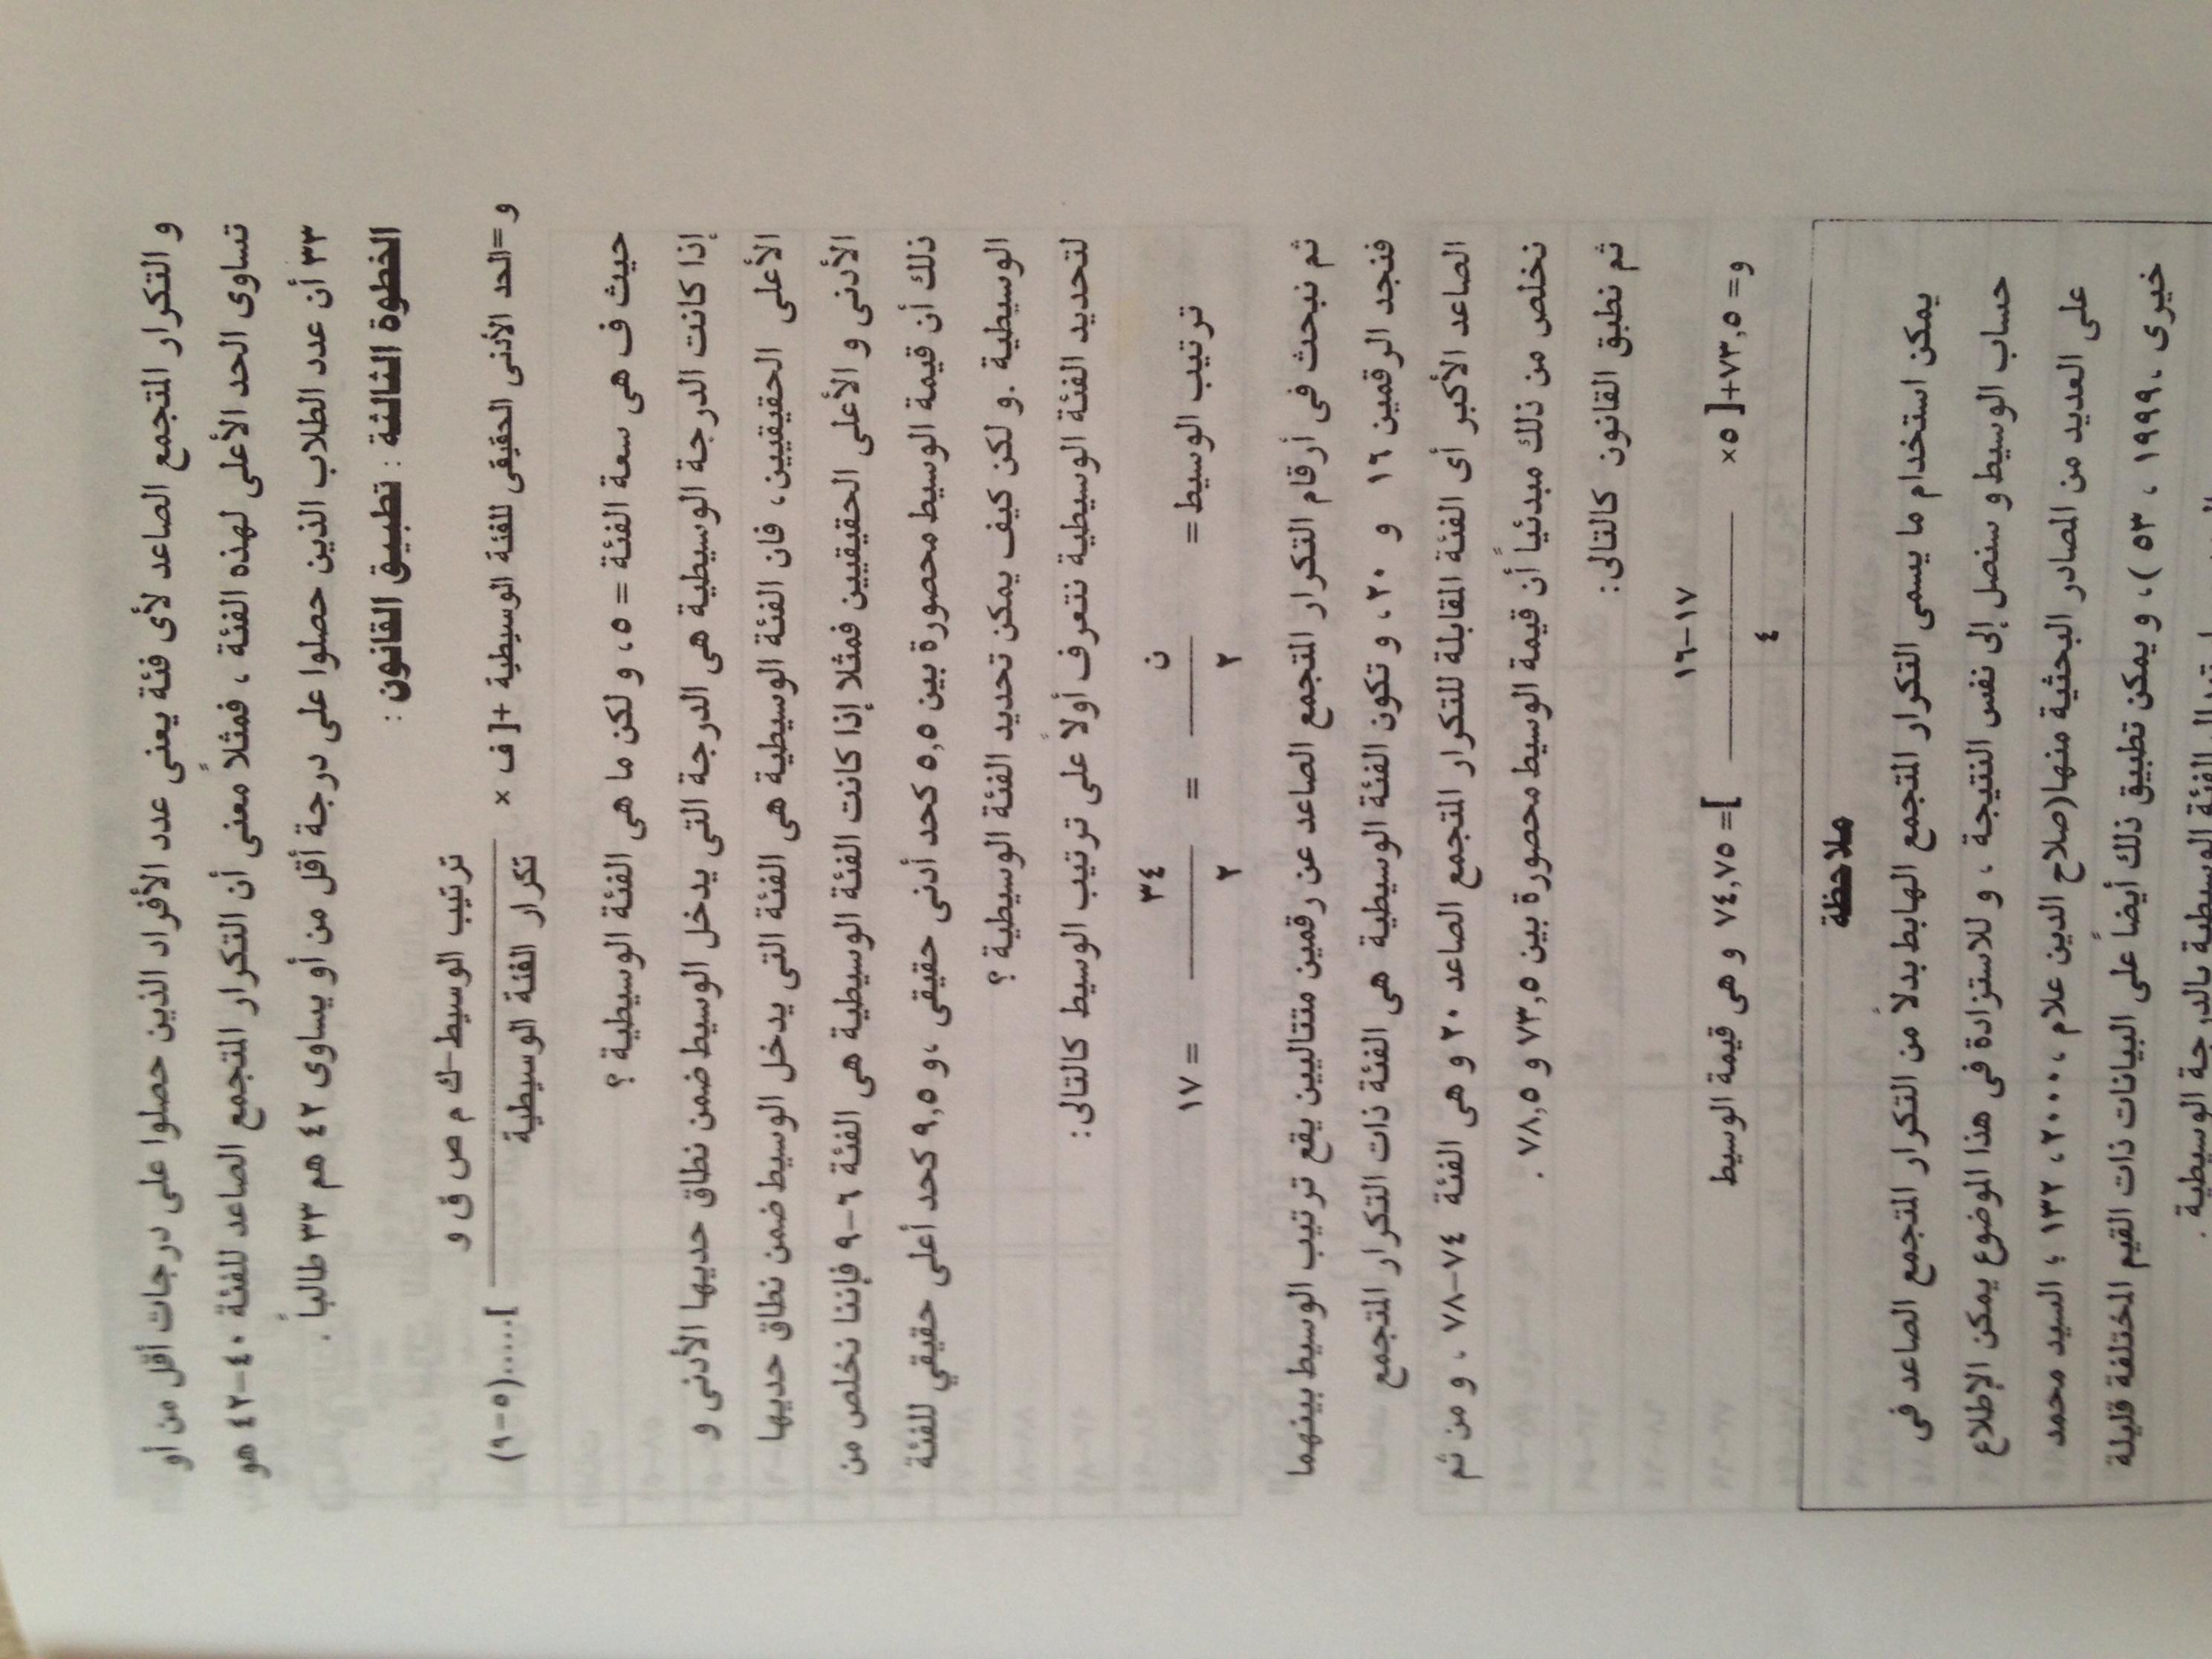 و التكرار المتجمع الصاعد لأى فئة يعنى عدد الأفراد الذين حصلوا على درجات أقل من أو
تساوى الحد الأعلى لهذه الفئة ، فمثلاً معنى أن التكرار المتجمع الصاعد للفئة ٤٠-٤٢ هو
٣٣ أن عدد الطلاب الذين حصلوا على درجة أقل من أو يساوى ٤٢ هم ٣٣ طالباً .
الخطوة الثالثة : تطبيق القانون :
ترتيب الوسيط-ك م ص ق و
و =الحد الأدنى الحقيقى للفئة الوسيطية +[ ف × ــــــــــــ ].....(٥-٩)
تكرار الفئة الوسيطية
حيث ف هى سعة الفئة = ٥، و لكن ما هى الفئة الوسيطية ؟
إذا كانت الدرجة الوسيطية هى الدرجة التى يدخل الوسيط ضمن نطاق حديها الأدنى و
الأعلى الحقيقيين، فان الفئة الوسيطية هى الفئة التى يدخل الوسيط ضمن نطاق حديها
الأدنى و الأعلى الحقيقيين فمثلا إذا كانت الفئة الوسيطية هى الفئة ٦-٩ فإننا نخلص من
ذلك أن قيمة الوسيط محصورة بين ٥,٥ كحد أدنى حقيقى ،و ٩,٥ كحد أعلى حقيقي للفئة
الوسيطية .و لكن كيف يمكن تحديد الفئة الوسيطية ؟
لتحديد الفئة الوسيطية نتعرف أولاً على ترتيب الوسيط كالتالى:
ن ٣٤
ترتيب الوسيط = ــــــ = ــــــ = ١٧
٢ ٢
ثم نبحث فى أرقام التكرار المتجمع الصاعد عن رقمين متتاليين يقع ترتيب الوسيط بينهما
فنجد الرقمين ١٦ و ٢٠، و تكون الفئة الوسيطية هى الفئة ذات التكرار المتجمع
الصاعد الأكبر أى الفئة المقابلة للتكرار المتجمع الصاعد ٢٠ و هى الفئة ٧٤-٧٨ ، و من ثم
نخلص من ذلك مبدئياً أن قيمة الوسيط محصورة بين ٧٣,٥ و ٧٨,٥ .
ثم نطبق القانون كالتالى:
١٧-١٦
و= ٧٣,٥+[ ٥× ــــــــــــ ]= ٧٤,٧٥ و هى قيمة الوسيط
٤
ملاحظة
يمكن استخدام ما يسمى التكرار المتجمع الهابط بدلاً من التكرار المتجمع الصاعد فى
حساب الوسيط و سنصل إلى نفس النتيجة ، و للاستزادة فى هذا الموضوع يمكن الإطلاع
على العديد من المصادر البحثية منها(صلاح الدين علام ، ٢٠٠٠، ١٣٢ ؛ السيد محمد
خيرى ،١٩٩٩ ، ٥٣ )، و يمكن تطبيق ذلك أيضاً على البيانات ذات القيم المختلفة قليلة
الفئة الوسيطية بالدرجة الوسيطية .